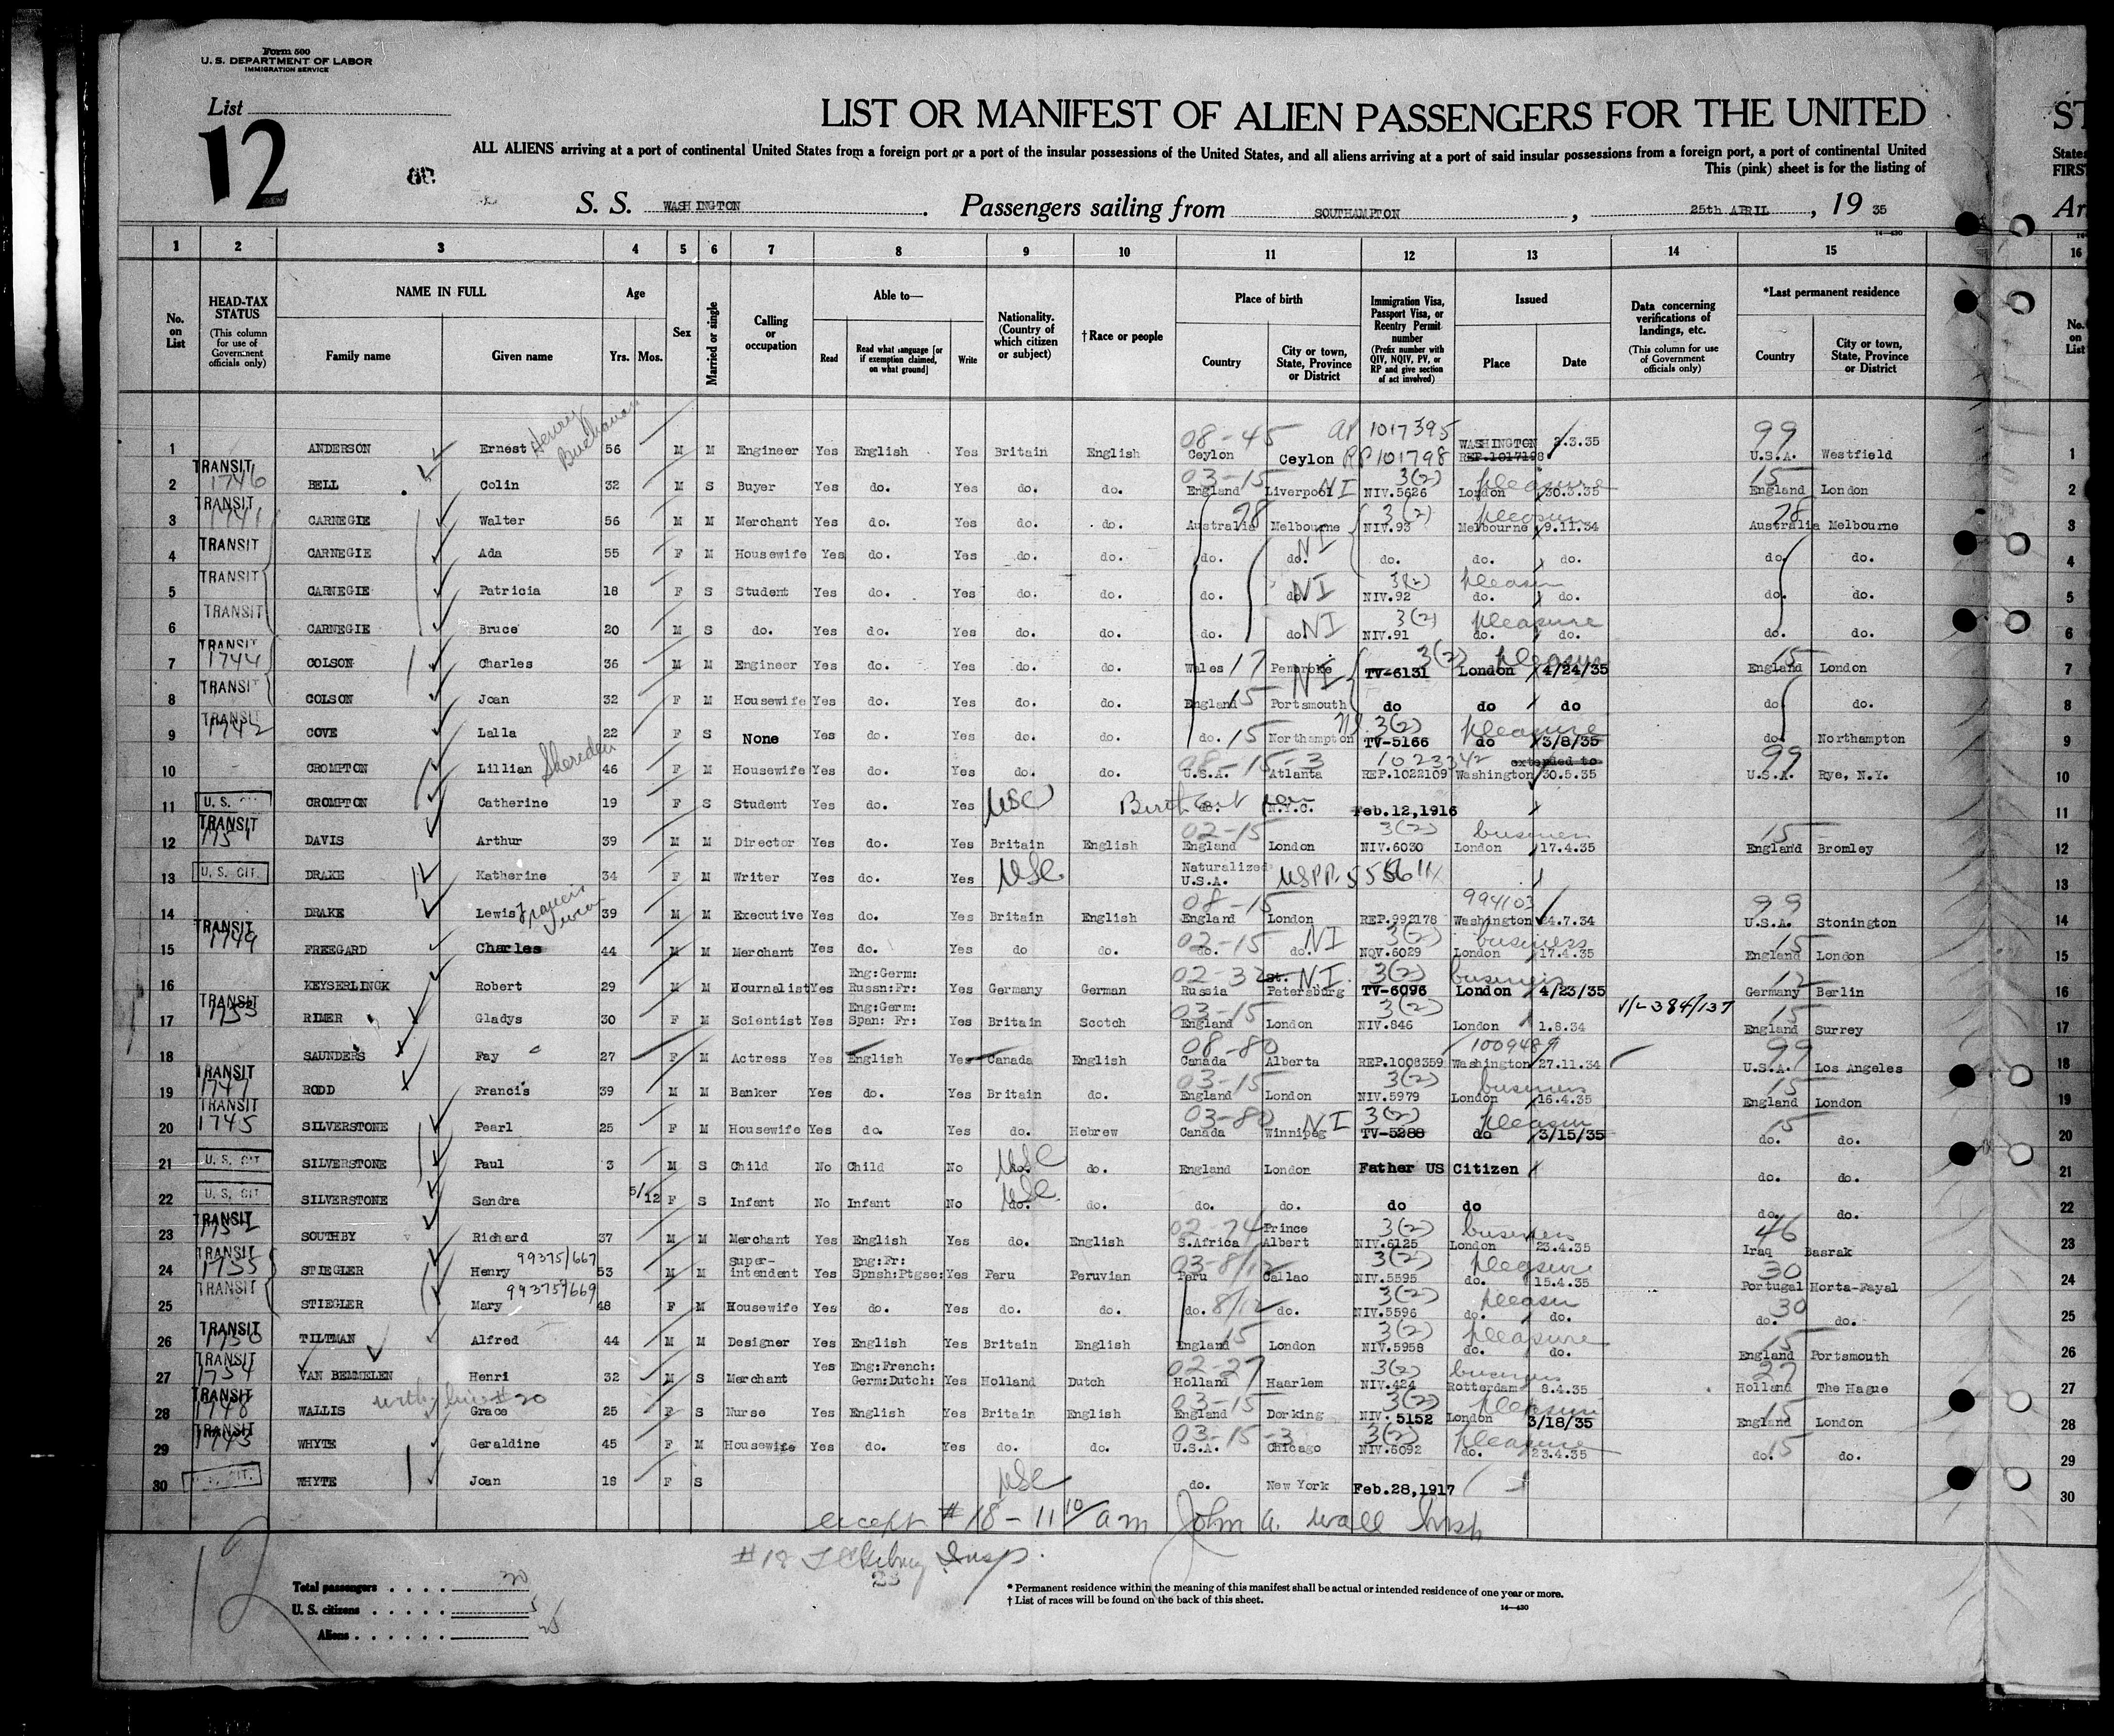 Form 500
U. S. DEPARTMENT OF LABOR
IMMIGRATION SERVICE
List
12
LIST OR MANIFEST OF ALIEN PASSENGERS FOR THE UNITED
ALL ALIENS arriving at a port of continental United States from a foreign port or a port of the insular possessions of the United States, and all aliens arriving at a port of said insular possessions from a foreign port, a port of continental United
This (pink) sheet is for the listing of
S. S. WASHINGTON. Passengers sailing from SOUTHAMPTON, 25th APRIL, 19 35
1 2 3 4 5 6 7 8 9 10 11 12 13 14 15 16
No. on List
HEAD-TAX STATUS (This column for use of Government officials only)
NAME IN FULL
Family name Given name
Age
Yrs. Mos.
Sex
Married or single
Calling or occupation
Able to—
Read
Read what language [or if exemption claimed, on what ground]
Write
Nationality. (Country of which citizen or subject)
†Race or people
Place of birth
Country
City or town, State, Province or District
Immigration Visa, Passport Visa, or Reentry Permit number (Prefix number with QIV, NQIV, PV, or RP and give section of act involved)
Issued
Place Date
Data concerning verifications of landings, etc. (This column for use of Government officials only)
*Last permanent residence
Country
City or town, State, Province or District
1 ANDERSON Ernest Henry Buchanan 56 M M Engineer Yes English Yes Britain English 08-45 Ceylon Ceylon 1017395 RP101798 WASHINGTON REP.1017198 2.3.35 99 U.S.A. Westfield 1
2 TRANSIT 1746 BELL Colin 32 M S Buyer Yes do. Yes do. do. 03-15 England Liverpool NI 3(2) NIV.5626 London pleasure 30.3.35 15 England London 2
3 TRANSIT 1741 CARNEGIE Walter 56 M M Merchant Yes do. Yes do. do. 78 Australia Melbourne 3(2) NIV.93 Melbourne pleasure 9.11.34 78 Australia Melbourne 3
4 TRANSIT CARNEGIE Ada 55 F M Housewife Yes do. Yes do. do. do. do. NI do. do. do. do. do. 4
5 TRANSIT CARNEGIE Patricia 18 F S Student Yes do. Yes do. do. do. do. NI 3(2) NIV.92 pleasure do. do. do. do. 5
6 TRANSIT CARNEGIE Bruce 20 M S do. Yes do. Yes do. do. do. do. NI 3(2) NIV.91 pleasure do. do. do. do. 6
7 TRANSIT 1744 COLSON Charles 36 M M Engineer Yes do. Yes do. do. Wales 17 Pembroke NI 3(2) TV-6131 London pleasure 4/24/35 15 England London 7
8 TRANSIT COLSON Joan 32 F M Housewife Yes do. Yes do. do. England 15 Portsmouth do do do do do. 8
9 TRANSIT 1742 COVE Lalla 22 F S None Yes do. Yes do. do. do. 15 Northampton NI 3(2) TV-5166 do pleasure 3/8/35 do. Northampton 9
10 CROMPTON Lillian Shereden 46 F M Housewife Yes do. Yes do. do. 08-15-3 U.S.A. Atlanta 1023342 REP.1022109 Washington extended to 30.5.35 99 U.S.A. Rye, N.Y. 10
11 U. S. CIT CROMPTON Catherine 19 F S Student Yes do. Yes USC Birth Cert do. N.Y.C. Feb.12,1916 11
12 TRANSIT 1751 DAVIS Arthur 39 M M Director Yes do. Yes Britain English 02-15 England London 3(2) NIV.6030 London business 17.4.35 15 England Bromley 12
13 U. S. CIT. DRAKE Katherine 34 F M Writer Yes do. Yes USC Naturalized U.S.A. 13
14 DRAKE Lewis Francis 39 M M Executive Yes do. Yes Britain English 08-15 England London REP.992178 994103 Washington 24.7.34 99 U.S.A. Stonington 14
15 TRANSIT 1749 FREEGARD Charles 44 M M Merchant Yes do. Yes do do. 02-15 do. do. NI 3(2) NQV.6029 London business 17.4.35 15 England London 15
16 KEYSERLINGK Robert 29 M M Journalist Yes Eng:Germ: Russn:Fr: Yes Germany German 02-32 Russia St. Petersburg NI. 3(2) TV-6096 London business 4/23/35 12 Germany Berlin 16
17 TRANSIT 1753 RIMER Gladys 30 F M Scientist Yes Eng:Germ: Span: Fr: Yes Britain Scotch 03-15 England London 3(2) NIV.846 London 1.8.34 V/L-384/137 15 England Surrey 17
18 SAUNDERS Fay 27 F M Actress Yes English Yes Canada English 08-80 Canada Alberta REP.1008359 1009489 Washington 27.11.34 99 U.S.A. Los Angeles 18
19 TRANSIT 1747 RODD Francis 39 M M Banker Yes do. Yes Britain do. 03-15 England London 3(2) NIV.5979 London business 16.4.35 15 England London 19
20 TRANSIT 1745 SILVERSTONE Pearl 25 F M Housewife Yes do. Yes do. Hebrew 03-80 Canada Winnipeg NI 3(2) TV-5288 do pleasure 3/15/35 15 do. do. 20
21 U. S. CIT SILVERSTONE Paul 3 M S Child No Child No USC do. England London Father US Citizen do. do. 21
22 U. S. CIT SILVERSTONE Sandra 5/12 F S Infant No Infant No USC do. do. do. do. do do do. do. 22
23 TRANSIT 1752 SOUTHBY Richard 37 M M Merchant Yes English Yes do. English 02-74 S.Africa Prince Albert 3(2) NIV.6125 London business 23.4.35 46 Iraq Basrak 23
24 TRANSIT 1755 STIEGLER Henry 99375/667 53 M M Super-intendent Yes Eng:Fr: Spnsh:Ptgse: Yes Peru Peruvian 03-8/12 Peru Callao 3(2) NIV.5595 do. pleasure 15.4.35 30 Portugal Horta-Fayal 24
25 TRANSIT STIEGLER Mary 99375/669 48 F M Housewife Yes do. Yes do. do. do. 8/12 do. 3(2) NIV.5596 pleasure do. do. 30 do. do. 25
26 TRANSIT 1750 TILTMAN Alfred 44 M M Designer Yes English Yes Britain English England 15 London 3(2) NIV.5958 pleasure do. do. 15 England Portsmouth 26
27 TRANSIT 1754 VAN BEMMELEN Henri 32 M S Merchant Yes Eng:French: Germ:Dutch: Yes Holland Dutch 02-27 Holland Haarlem 3(2) NIV.424 Rotterdam business 8.4.35 27 Holland The Hague 27
28 TRANSIT 1748 WALLIS with line #20 Grace 25 F S Nurse Yes English Yes Britain English 03-15 England Dorking 3(2) NIV.5152 London pleasure 3/18/35 15 England London 28
29 TRANSIT 1743 WHYTE Geraldine 45 F M Housewife Yes do. Yes do. do. 03-15-3 U.S.A. Chicago 3(2) NIV.6092 pleasure do. 23.4.35 do. 15 do. 29
30 U.S. CIT. WHYTE Joan 18 F S USC do. New York Feb.28,1917 30
except #18 - 11 10/ am John A. Wall Insp
#18 Insp.
12
Total passengers . . . . 30
U. S. citizens . . . . . 5
Aliens . . . . . . 25
* Permanent residence within the meaning of this manifest shall be actual or intended residence of one year or more.
† List of races will be found on the back of this sheet.
14—430